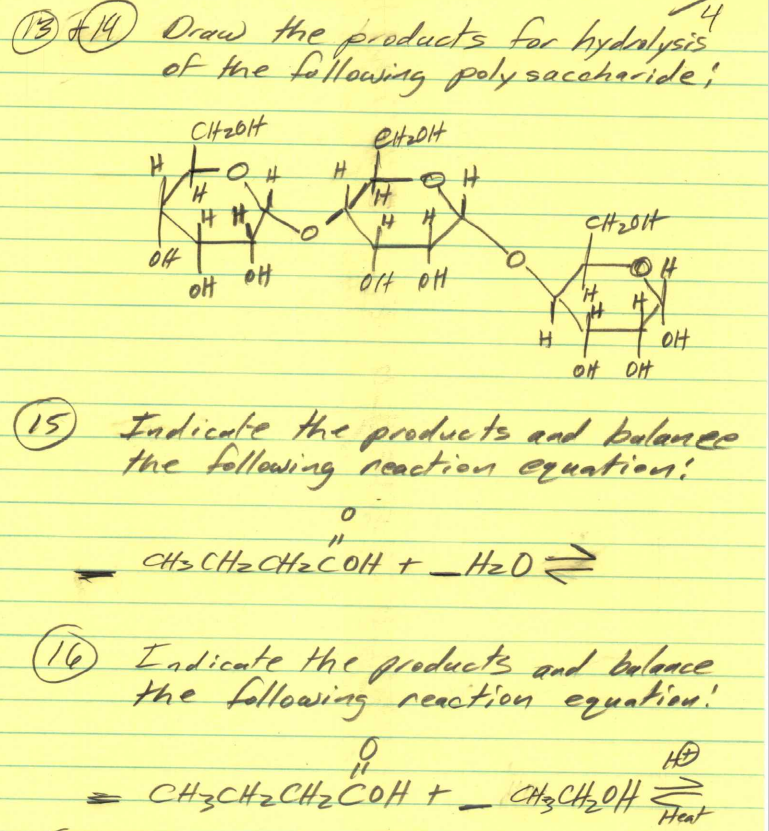 4
13 + 14 Draw the products for hydrolysis
of the following polysaccharide:
CH2OH CH2OH
H O H H O H
H H
H H H H CH2OH
O
OH O O H
OH OH OH OH H
H H
H OH
OH OH
15 Indicate the products and balance
the following reaction equation:
O
"
_ CH3CH2CH2COH + _ H2O ⇌
16 Indicate the products and balance
the following reaction equation:
O
" H⊕
_ CH3CH2CH2COH + _ CH3CH2OH ⇌
Heat